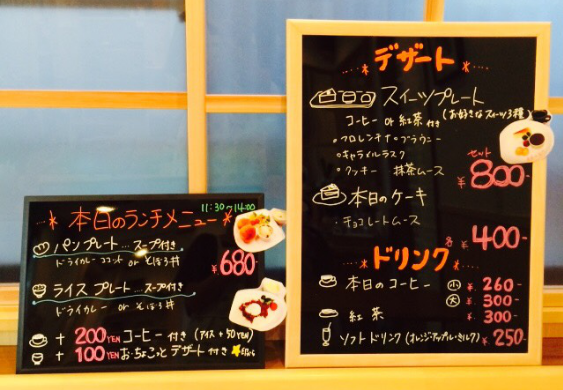 11:30~14:00
本日のランチメニュー
パンプレート…スープ付き
ドライカレー ココット or そぼろ丼
¥680-
ライスプレート…スープ付き
ドライカレー or そぼろ丼
+200YEN コーヒー付き (アイス+50YEN)
+100YEN お・ちょこっとデザート付き
デザート
スイーツプレート
(お好きなスイーツ3種)
コーヒー or 紅茶 付き
・フロレンチナ・ブラウニー
・キャラメルラスク
・クッキー 抹茶ムース
セット
¥800-
本日のケーキ
・チョコレートムース
各
¥400-
ドリンク
本日のコーヒー 小 ¥260-
大 ¥300-
紅茶 ¥300-
ソフトドリンク(オレンジ・アップル・ミルク) ¥250-